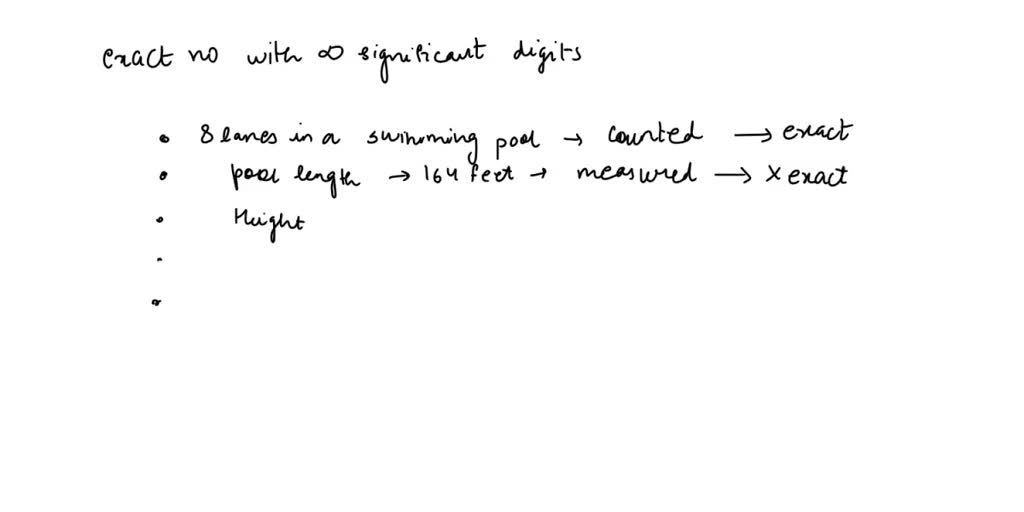 exact no with ∞ significant digits
• 8 lanes in a swimming pool → counted → exact
• pool length → 164 feet → measured → X exact
• Height
•
•